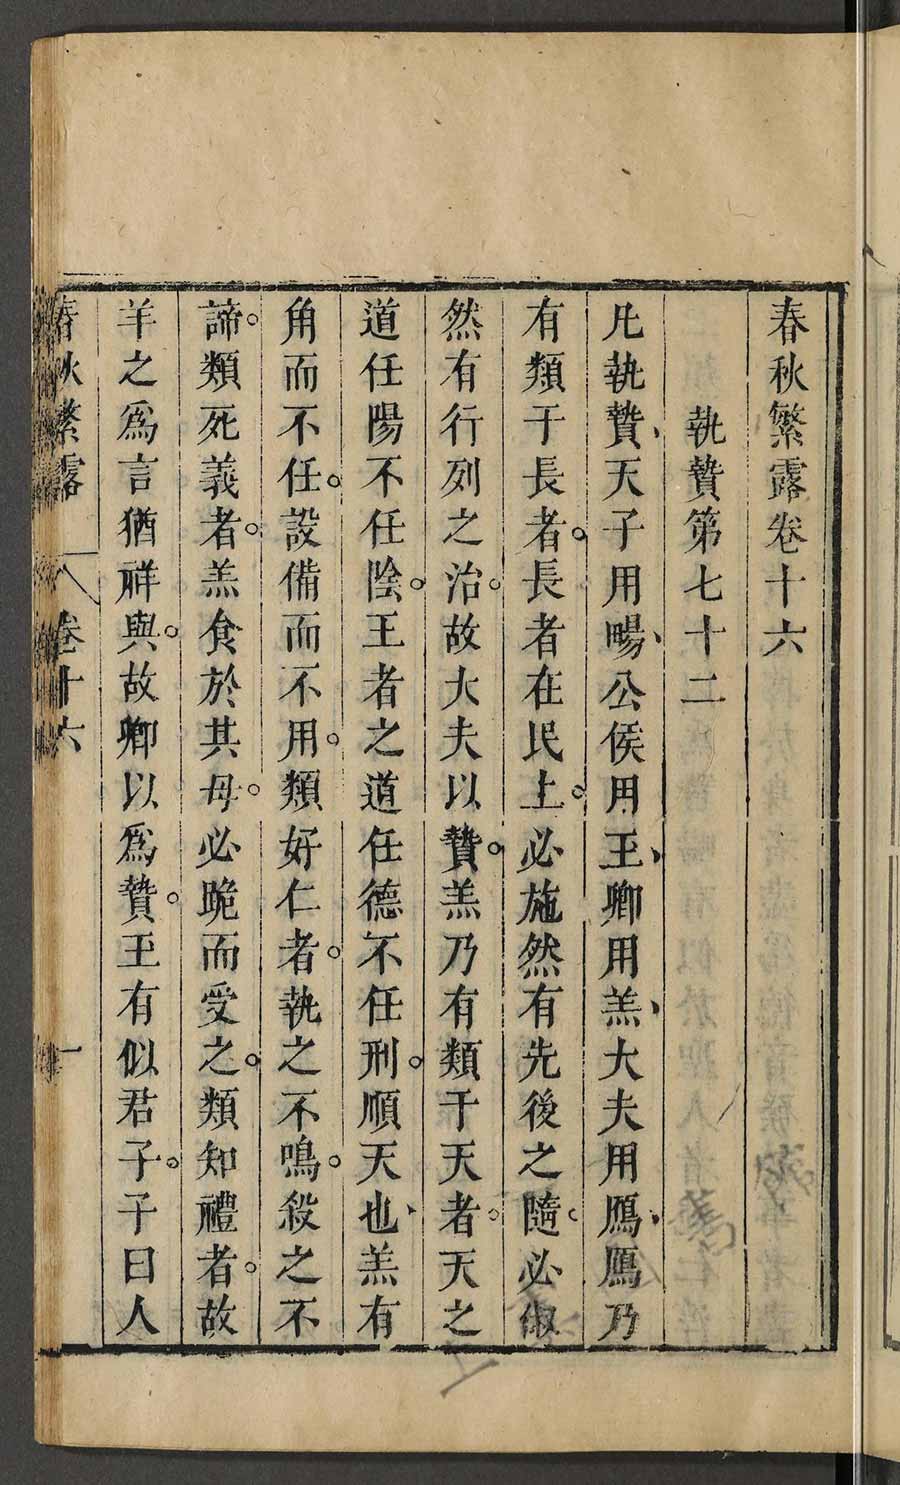 春秋繁露卷十六
執贄第七十二
凡執贄、天子用暢、公侯用玉、卿用羔、大夫用鴈、鴈乃
有類于長者。長者在民上。必施然有先後之隨。必俶
然有行列之治。故大夫以贄。羔乃有類于天者。天之
道任陽不任陰。王者之道任德不任刑。順天也、羔有
角而不任。設備而不用。類好仁者。執之不鳴。殺之不
諦。類死義者。羔食於其母。必跪而受之。類知禮者。故
羊之爲言猶祥與。故卿以爲贄。玉有似君子。子曰人
春秋繁露
卷十六
一